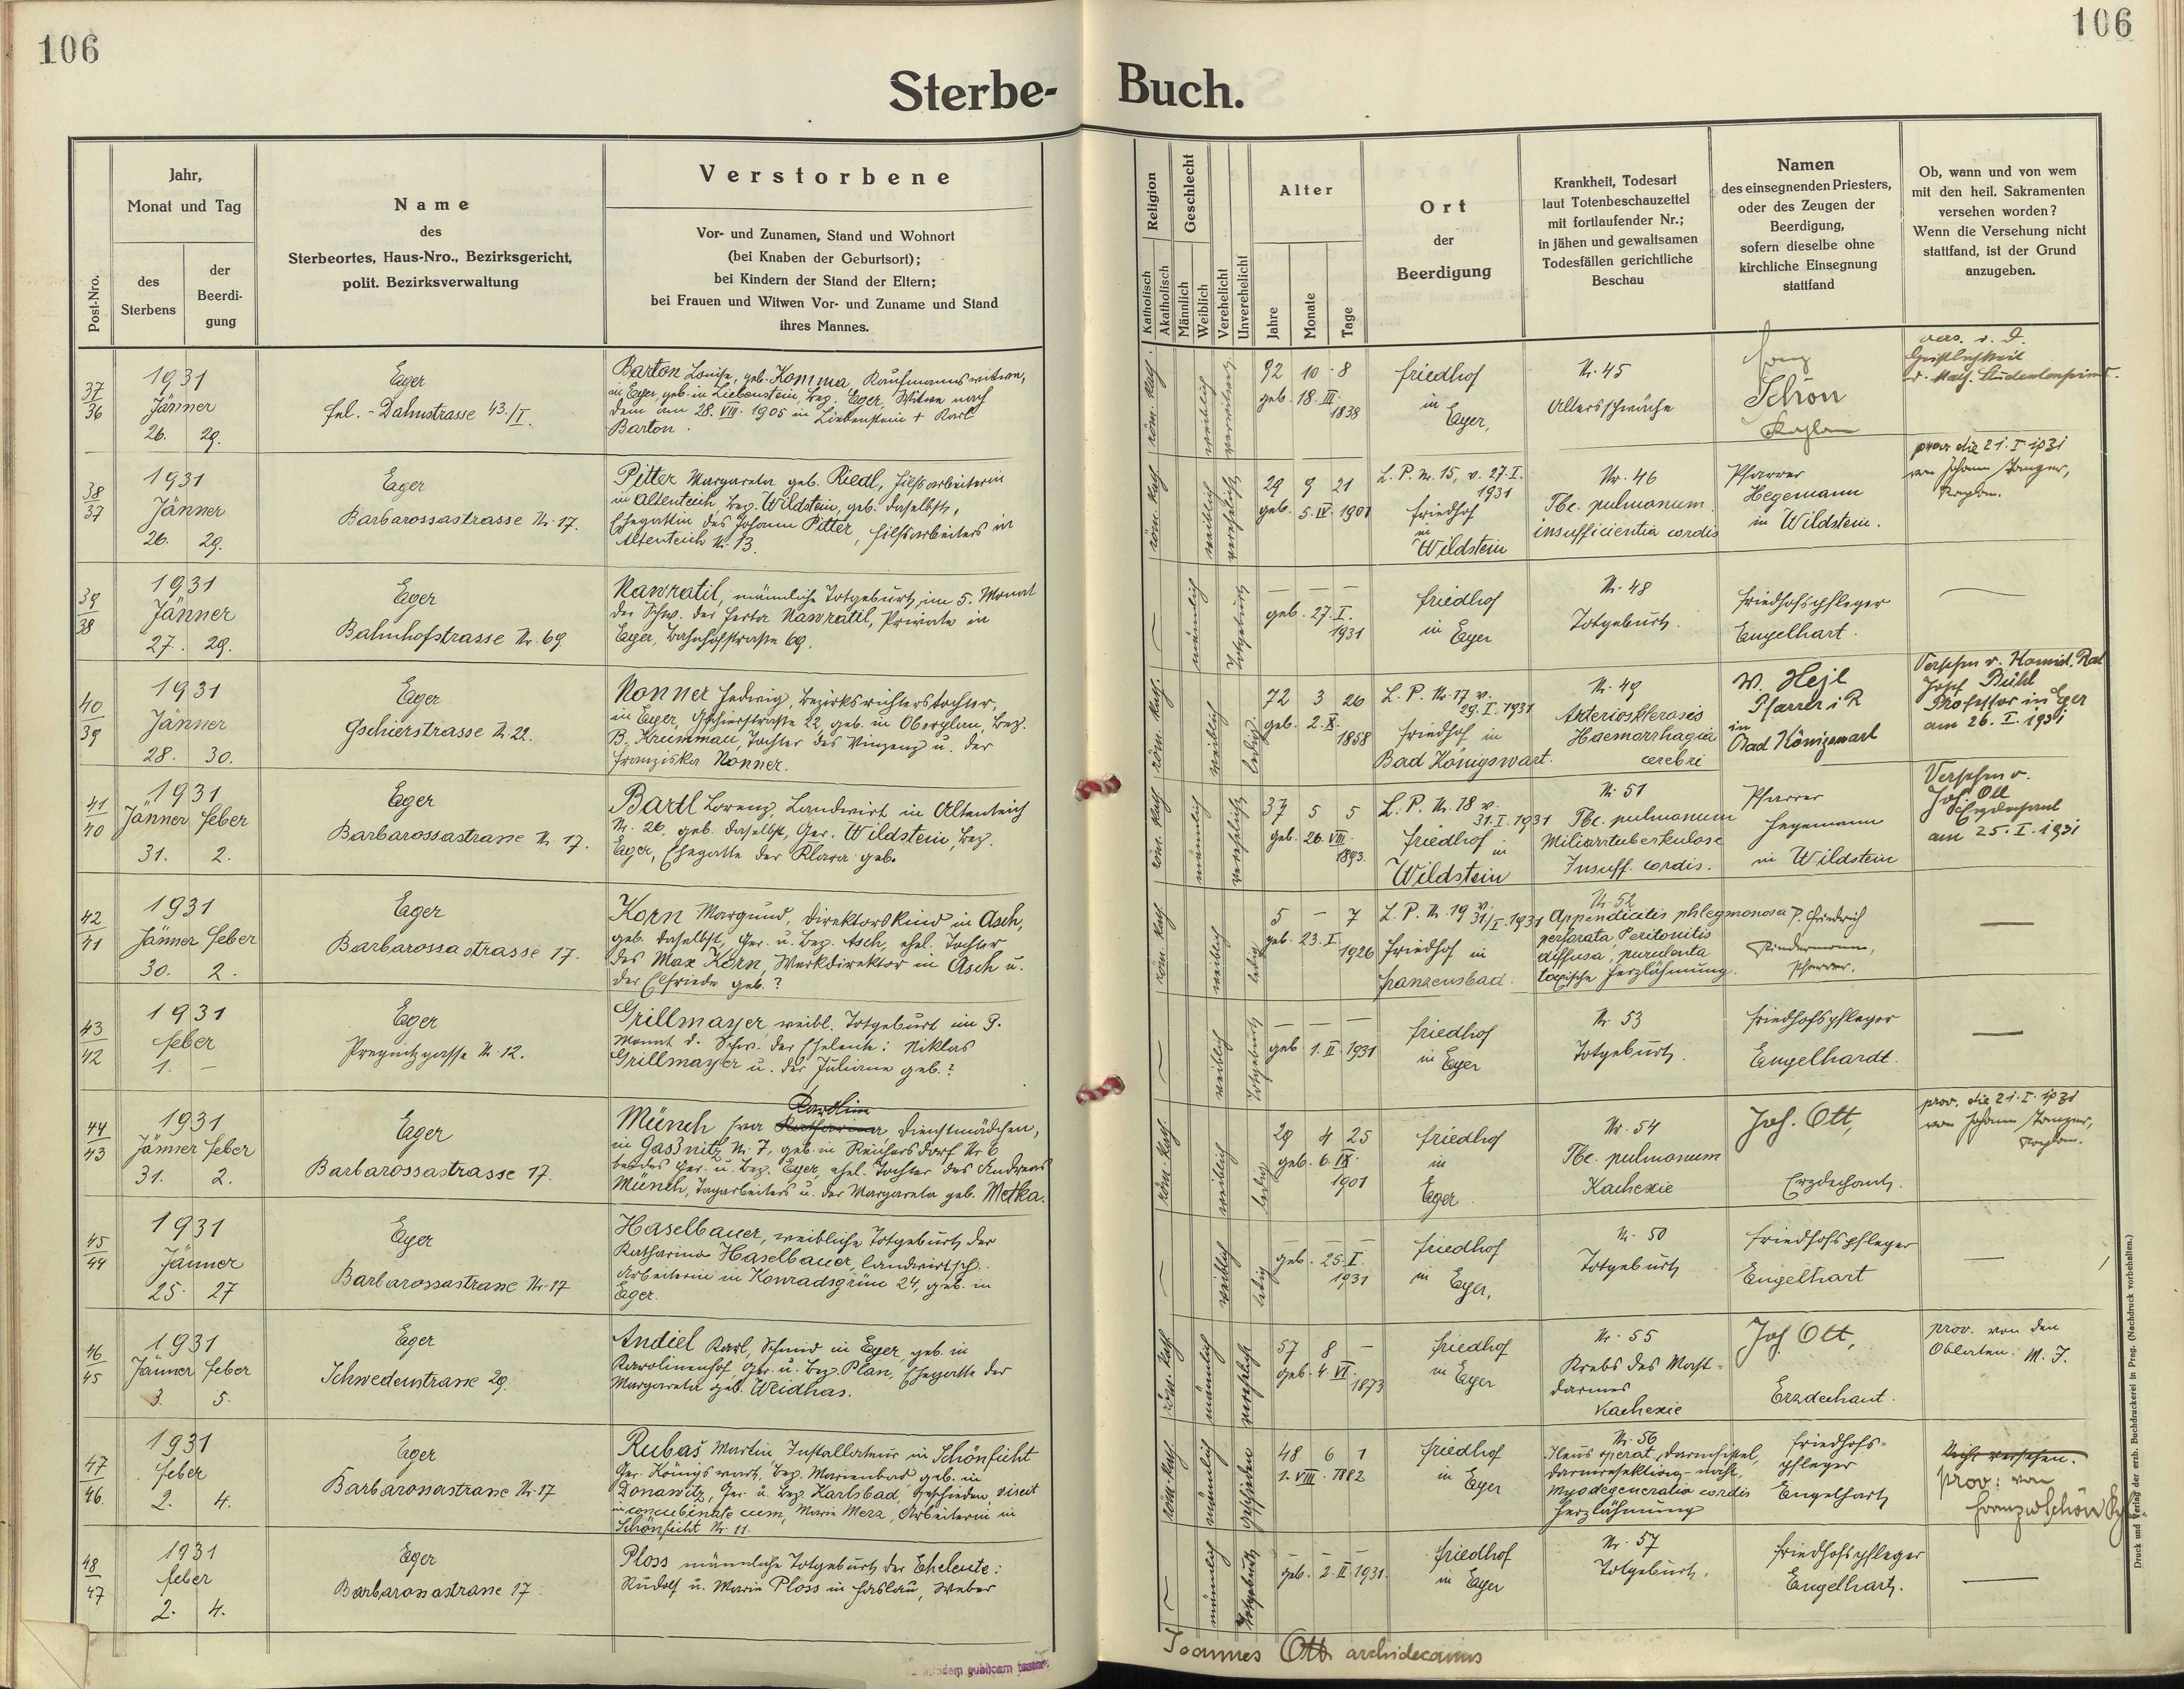 106
106
Sterbe-
Buch.
Post-Nro.
Jahr,
Monat und Tag
des
Sterbens
der
Beerdi-
gung
Name
des
Sterbeortes, Haus-Nro., Bezirksgericht,
polit. Bezirksverwaltung
Verstorbene
Vor- und Zunamen, Stand und Wohnort
(bei Knaben der Geburtsort);
bei Kindern der Stand der Eltern;
bei Frauen und Witwen Vor- und Zuname und Stand
ihres Mannes.
Religion
Katholisch
Akatholisch
Geschlecht
Männlich
Weiblich
Verehelicht
Unverehelicht
Alter
Jahre
Monate
Tage
Ort
der
Beerdigung
Krankheit, Todesart
laut Totenbeschauzettel
mit fortlaufender Nr.;
in jähen und gewaltsamen
Todesfällen gerichtliche
Beschau
Namen
des einsegnenden Priesters,
oder des Zeugen der
Beerdigung,
sofern dieselbe ohne
kirchliche Einsegnung
stattfand
Ob, wann und von wem
mit den heil. Sakramenten
versehen worden?
Wenn die Versehung nicht
stattfand, ist der Grund
anzugeben.
37
36
1931
Jänner
26. 29.
Eger
fel.-Dahnstrasse 43./I.
Barton Louise, geb. Komma, Kaufmannswitwe,
in Eger, geb. in Liebenstein, Bez. Eger, Witwe nach
dem am 28. VIII. 1905 in Liebenstein + Karl
Barton.
röm. kath.
weiblich
verwitwet
92 10 8
geb. 18. III.
1838
Friedhof
in
Eger,
Nr. 45
Altersschwäche
Franz
Schön
Kaplan
vers. v. d.
Geistlichkeit
38
37
1931
Jänner
26. 29.
Eger
Barbarossastrasse Nr. 17.
Pitter Margareta geb. Riedl, Hilfsarbeiterin
in Altenteich, Bez. Wildstein, geb. daselbst,
Ehegattin des Johann Pitter, Hilfsarbeiters in
Altenteich Nr. 13.
röm. kath.
weiblich
verehelicht
29 9 21
geb. 5. IV. 1901
L. P. Nr. 15, v. 27. I.
1931
Friedhof
in
Wildstein
Nr. 46
Tbc. pulmonum
insufficientia cordis
Pfarrer
Hegemann
in Wildstein.
prov. die 21. I 1931
von Johann Zanger,
Kaplan.
39
38
1931
Jänner
27. 29.
Eger
Bahnhofstrasse Nr. 69.
Nawratil, männliche Totgeburt im 5. Monat
der Schw. der Herta Nawratil, Private in
Eger, Bahnhofstraße 69.
männlich
Totgeburt
geb. 27. I.
1931
Friedhof
in Eger
Nr. 48
Totgeburt.
Friedhofspfleger
Engelhart.
40
39
1931
Jänner
28. 30.
Eger
Gschierstrasse Nr. 22.
Nonner Hedwig, Bezirksrichterstochter,
in Eger, Gschierstraße 22, geb. in Oberplan, Bez.
B. Krummau, Tochter des Vinzenz u. der
Franziska Nonner.
röm. kath.
weiblich
ledig.
72 3 26
geb. 2. X.
1858
L. P. Nr. 17 v.
29. I. 1931
Friedhof in
Bad Königswart.
Nr. 49
Arteriosklerosis
Haemorrhagia
cerebri
W. Hejl
Pfarrer i R
in
Bad Königswart
Versehen v.
Josef Bühl
Professor in Eger
am 26. I. 1931
41
40
1931
Jänner feber
31. 2.
Eger
Barbarossastrasse Nr. 17.
Bartl Lorenz, Landwirt in Altenteich
Nr. 26, geb. daselbst, Ger. Wildstein, Bez.
Eger, Ehegatte der Klara geb.
röm. kath.
männlich
verehelicht
37 5 5
geb. 26. VIII.
1893.
L. P. Nr. 18 v.
31. I. 1931
Friedhof in
Wildstein
Nr. 51
Tbc. pulmonum
Miliartuberkulose
Insuff. cordis.
Pfarrer
Hegemann
in Wildstein
Versehen v.
Joh Ott
Erzdechant
am 25. I. 1931
42
41
1931
Jänner feber
30. 2.
Eger
Barbarossastrasse 17.
Korn Margund, Direktorskind in Asch,
geb. daselbst, Ger. u. Bez. Asch, ehel. Tochter
des Max Korn, Werkdirektor in Asch u.
der Elfriede geb. ?
röm. kath.
weiblich
ledig
5 – 7
geb. 23. I.
1926
L. P. Nr. 19 v.
31/I. 1931
Friedhof in
Franzensbad.
Nr. 52
Appendicitis phlegmonosa
perforata, Peritonitis
diffusa, purulenta
toxische Herzlähmung.
P. Friedrich
Pfarrer.
43
42
1931
feber
1. –
Eger
Pregnitzgasse Nr. 12.
Grillmayer, weibl. Totgeburt im 9.
Monat d. Schw. der Eheleute: Niklas
Grillmayer u. der Juliane geb. ?
weiblich
Totgeburt
geb. 1. II. 1931
Friedhof
in Eger
Nr. 53
Totgeburt.
Friedhofspfleger
Engelhardt.
44
43
1931
Jänner feber
31. 2.
Eger
Barbarossastrasse 17.
Karolina
Münch Eva Katharina Dienstmädchen,
in Gaßnitz Nr. 7, geb. in Reichersdorf Nr. 6
beides Ger. u. Bez. Eger, ehel. Tochter des Andreas
Münch, Tagarbeiters u. der Margareta geb. Metka.
röm. kath.
weiblich
ledig
29 4 25
geb. 6. IX.
1901
Friedhof
in
Eger.
Nr. 54
Tbc. pulmonum
Kachexie
Joh. Ott,
Erzdechant.
prov. die 21. I. 1931
von Johann Zanger,
Kaplan.
45
44
1931
Jänner
25. 27
Eger
Barbarossastrasse Nr. 17
Haselbauer, weibliche Totgeburt der
Katharina Haselbauer, landwirtsch.
Arbeiterin in Konradsgrün 24, geb. in
Eger.
weiblich
ledig
geb. 25. I.
1931
Friedhof
in Eger,
Nr. 50
Totgeburt
Friedhofspfleger
Engelhart
46
45
1931
Jänner feber
3. 5.
Eger
Schwedenstrasse 29.
Andiel Karl, Schmid in Eger, geb. in
Karolinenhof, Ger. u. Bez. Plan, Ehegatte der
Margareta geb. Weidhas.
röm. kath.
männlich
verehelicht
57 8 –
geb. 4. VI.
1873
Friedhof
in Eger
Nr. 55
Krebs des Mast-
darmes
Kachexie
Joh Ott,
Erzdechant.
prov. von den
Oblaten. M. J.
47
46
1931
feber
2. 4.
Eger
Barbarossastrasse Nr. 17
Rubaš Martin Installateur in Schönficht
Ger. Königswart, Bez. Marienbad, geb. in
Donawitz, Ger. u. Bez. Karlsbad, geschieden, vixit
in concubinate cum, Maria Merz, Arbeiterin in
Schönficht Nr. 11.
röm. kath.
männlich
geschieden
48 6 1
1. VIII. 1882
Friedhof
in Eger
Nr. 56
Ileus operat, Darmfistel,
Darmresektion-naht,
Myodegeneratio cordis
Herzlähmung
Friedhofs-
pfleger
Engelhart
Nicht versehen.
prov: von
Franz Schön
48
47
1931
feber
2. 4.
Eger
Barbarossastrasse 17
Ploss männliche Totgeburt der Eheleute:
Rudolf u. Maria Ploss in Haslau, Weber
männlich
Totgeburt
geb. 2. II. 1931.
Friedhof
in Eger
Nr. 57
Totgeburt.
Friedhofspfleger
Engelhart.
Joannes Ott archidecanus
Druck und Verlag der erzb. Buchdruckerei in Prag. (Nachdruck vorbehalten.)